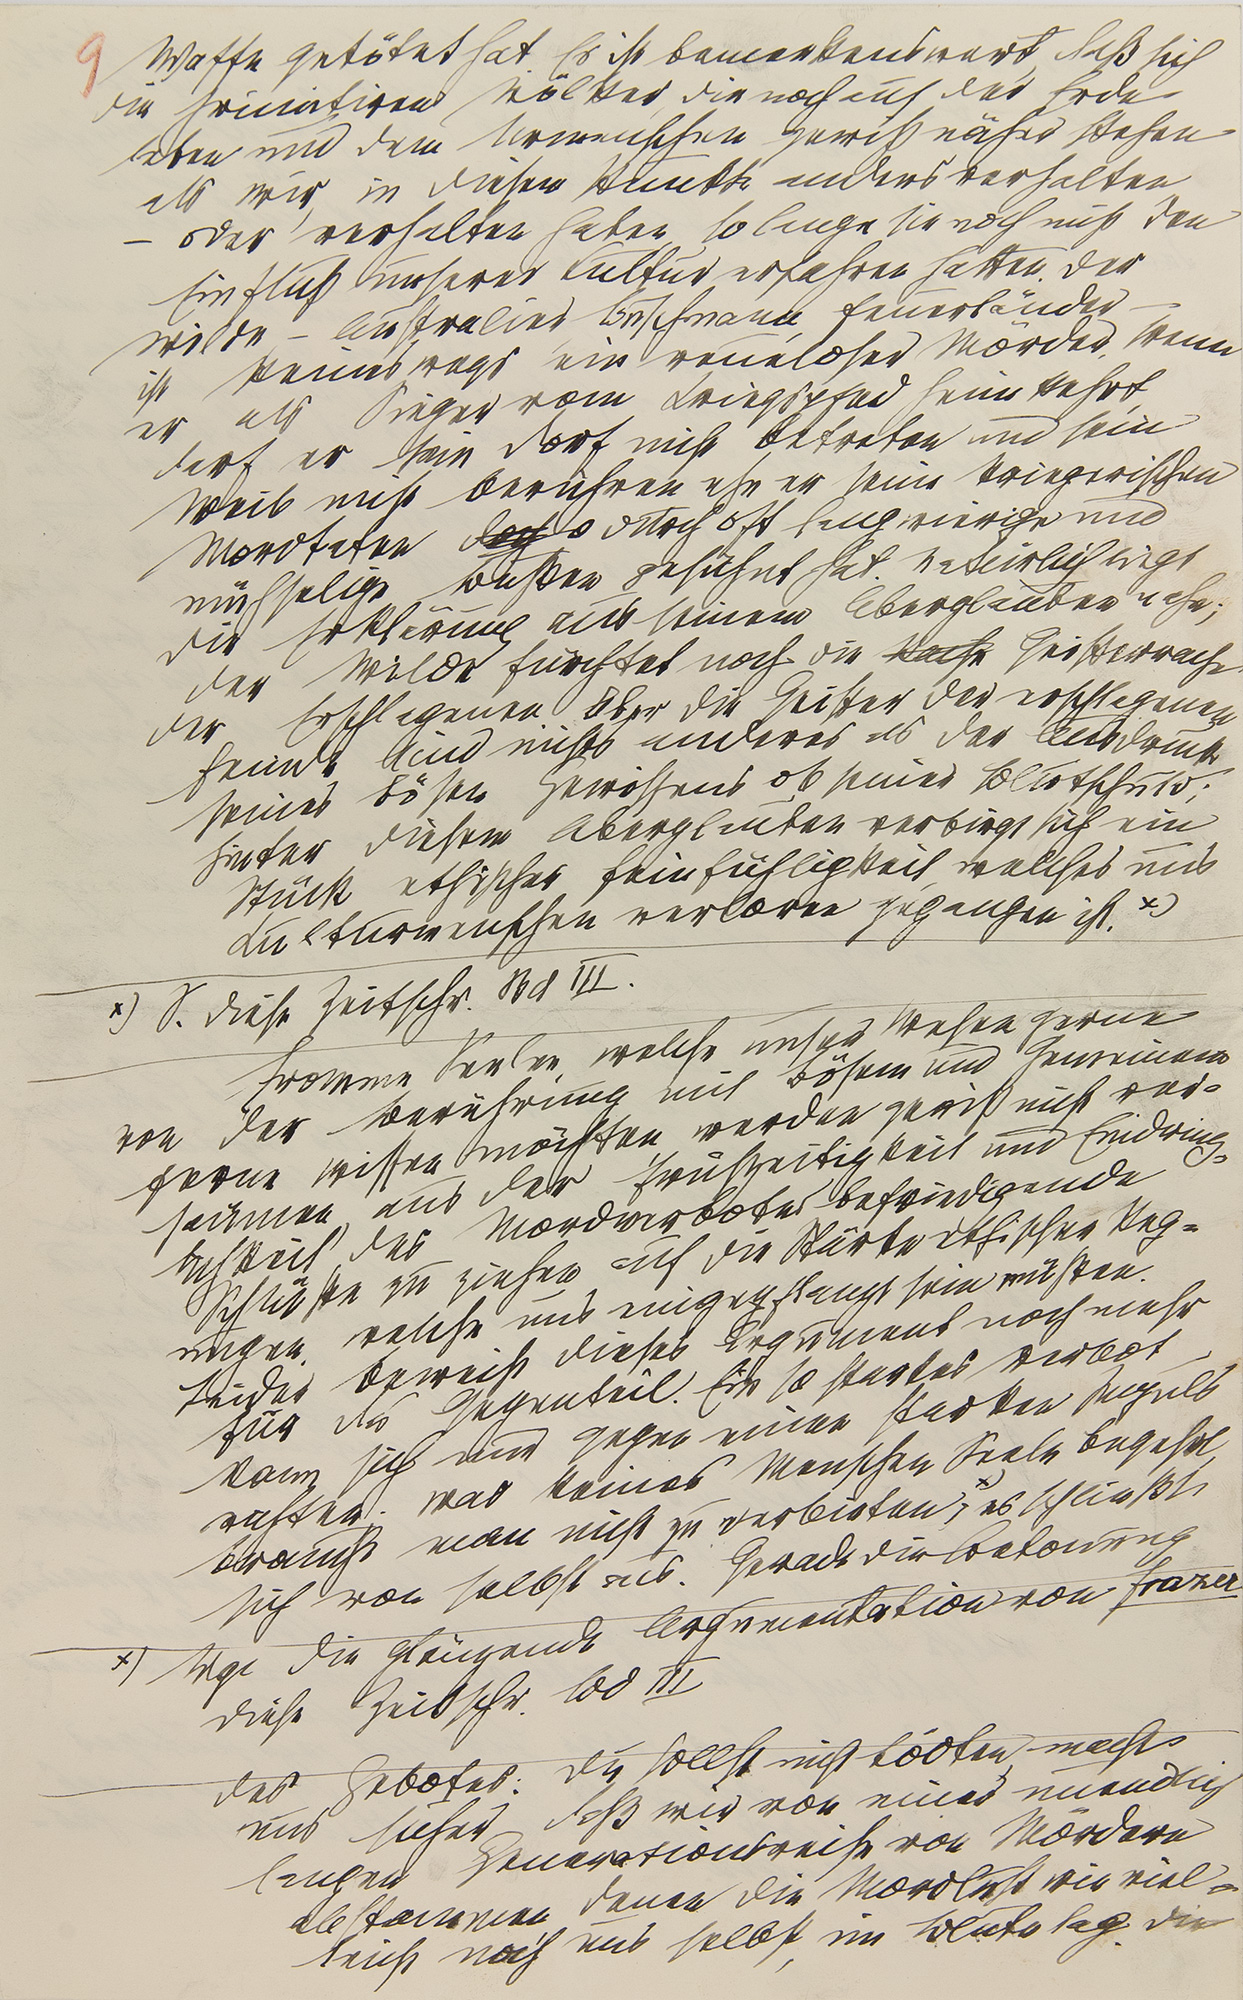 9 Waffe getötet hat. Es ist bemerkenswert, daß sich
die primitiven Völker, die noch auf der Erde
leben und dem Urmenschen gewiß näher stehen
als wir, in diesem Punkte anders verhalten
– oder verhalten haben, solange sie noch nicht den
Einfluß unserer Kultur erfahren hatten. Der
Wilde – Australier, Buschmann, Feuerländer –
ist keineswegs ein reueloser Mörder. Wenn
er als Sieger vom Kriegspfad heimkehrt,
darf er sein Dorf nicht betreten und sein
Weib nicht berühren, ehe er seine kriegerischen
Mordtaten durch oft langwierige und
mühselige Bußen gesühnt hat. Natürlich liegt
die Erklärung aus seinem Aberglauben nahe;
der Wilde fürchtet noch die Geisterrache
der Erschlagenen. Aber die Geister der erschlagenen
Feinde sind nichts anderes als der Ausdruck
seines bösen Gewissens ob seiner Blutschuld;
hinter diesem Aberglauben verbirgt sich ein
Stück ethischer Feinfühligkeit, welches uns
Kulturmenschen verloren gegangen ist. x)
x) S. diese Zeitschr. Bd III.
Fromme Seelen, welche unser Wesen gerne
von der Berührung mit Bösem und Gemeinem
ferne wissen möchten, werden gewiß nicht ver-
säumen, aus der Frühzeitigkeit und Eindring-
lichkeit des Mordverbotes befriedigende
Schlüsse zu ziehen auf die Stärke ethischer Reg-
ungen, welche uns eingepflanzt sein müßten.
Leider beweist dieses Argument noch mehr
für das Gegenteil. Ein so starkes Verbot
kann sich nur gegen einen starken Impuls
richten. Was keines Menschen Seele begehrt,
braucht man nicht zu verbieten, x) es schließt
sich von selbst aus. Gerade die Betonung
x) Vgl die glänzende Argumentation von Frazer
diese Zeitschr. Bd III
des Gebotes: Du sollst nicht tödten, macht
uns sicher, daß wir von einer unendlich
langen Generationsreihe von Mördern
abstammen, denen die Mordlust, wie viel-
leicht noch uns selbst, im Blute lag. Die